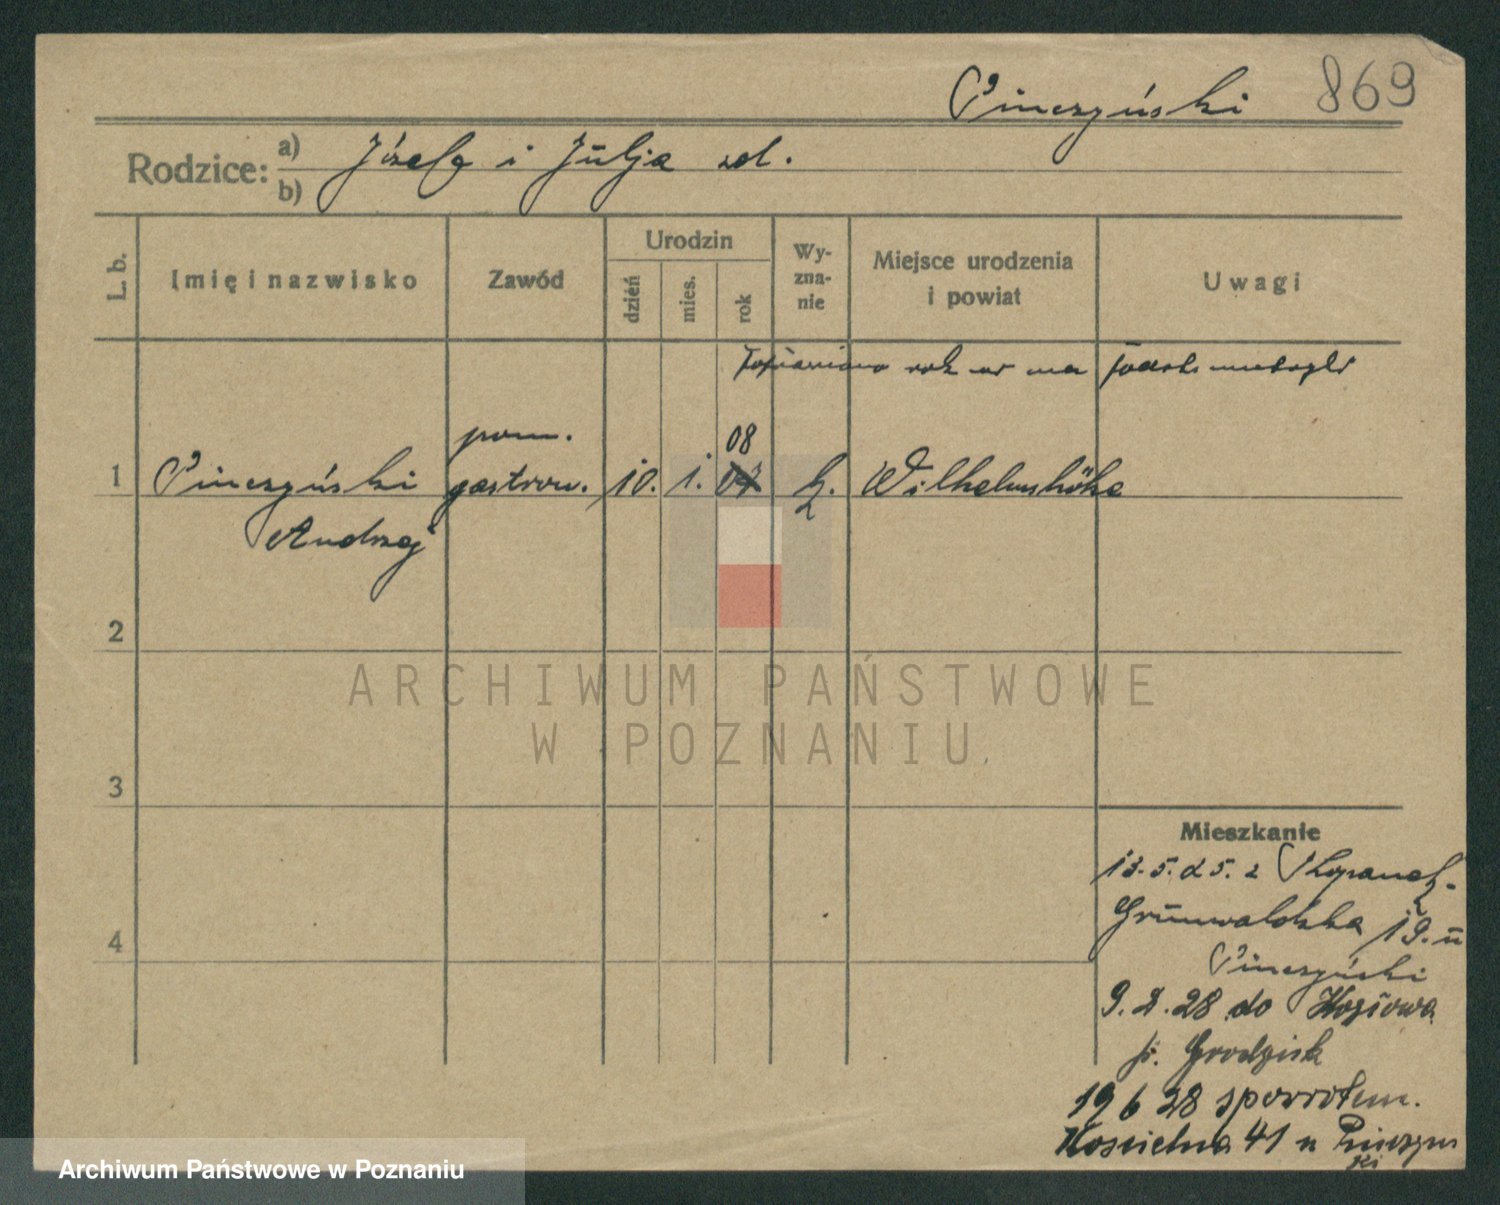 Pinczyński 869
Rodzice: a) Józefa i Julja zd.
b)
L. b.
Imię i nazwisko
Zawód
Urodzin
dzień
mies.
rok
Wy-
zna-
nie
Miejsce urodzenia
i powiat
Uwagi
rok
pom.
08
1 Pinczyński gastron. 10. 1. 07 k. Wilhelmshöhe
Andrzej
2
ARCHIWUM PAŃSTWOWE
W POZNANIU
3
Mieszkanie
13. 5. 25. z
4
Grunwaldzka 19. u
Pinczyński
9. 2. 28 do
p. Grodzisk
19 6 28 spowrotem.
Kościelna 41 u Pinczyń
ski
Archiwum Państwowe w Poznaniu